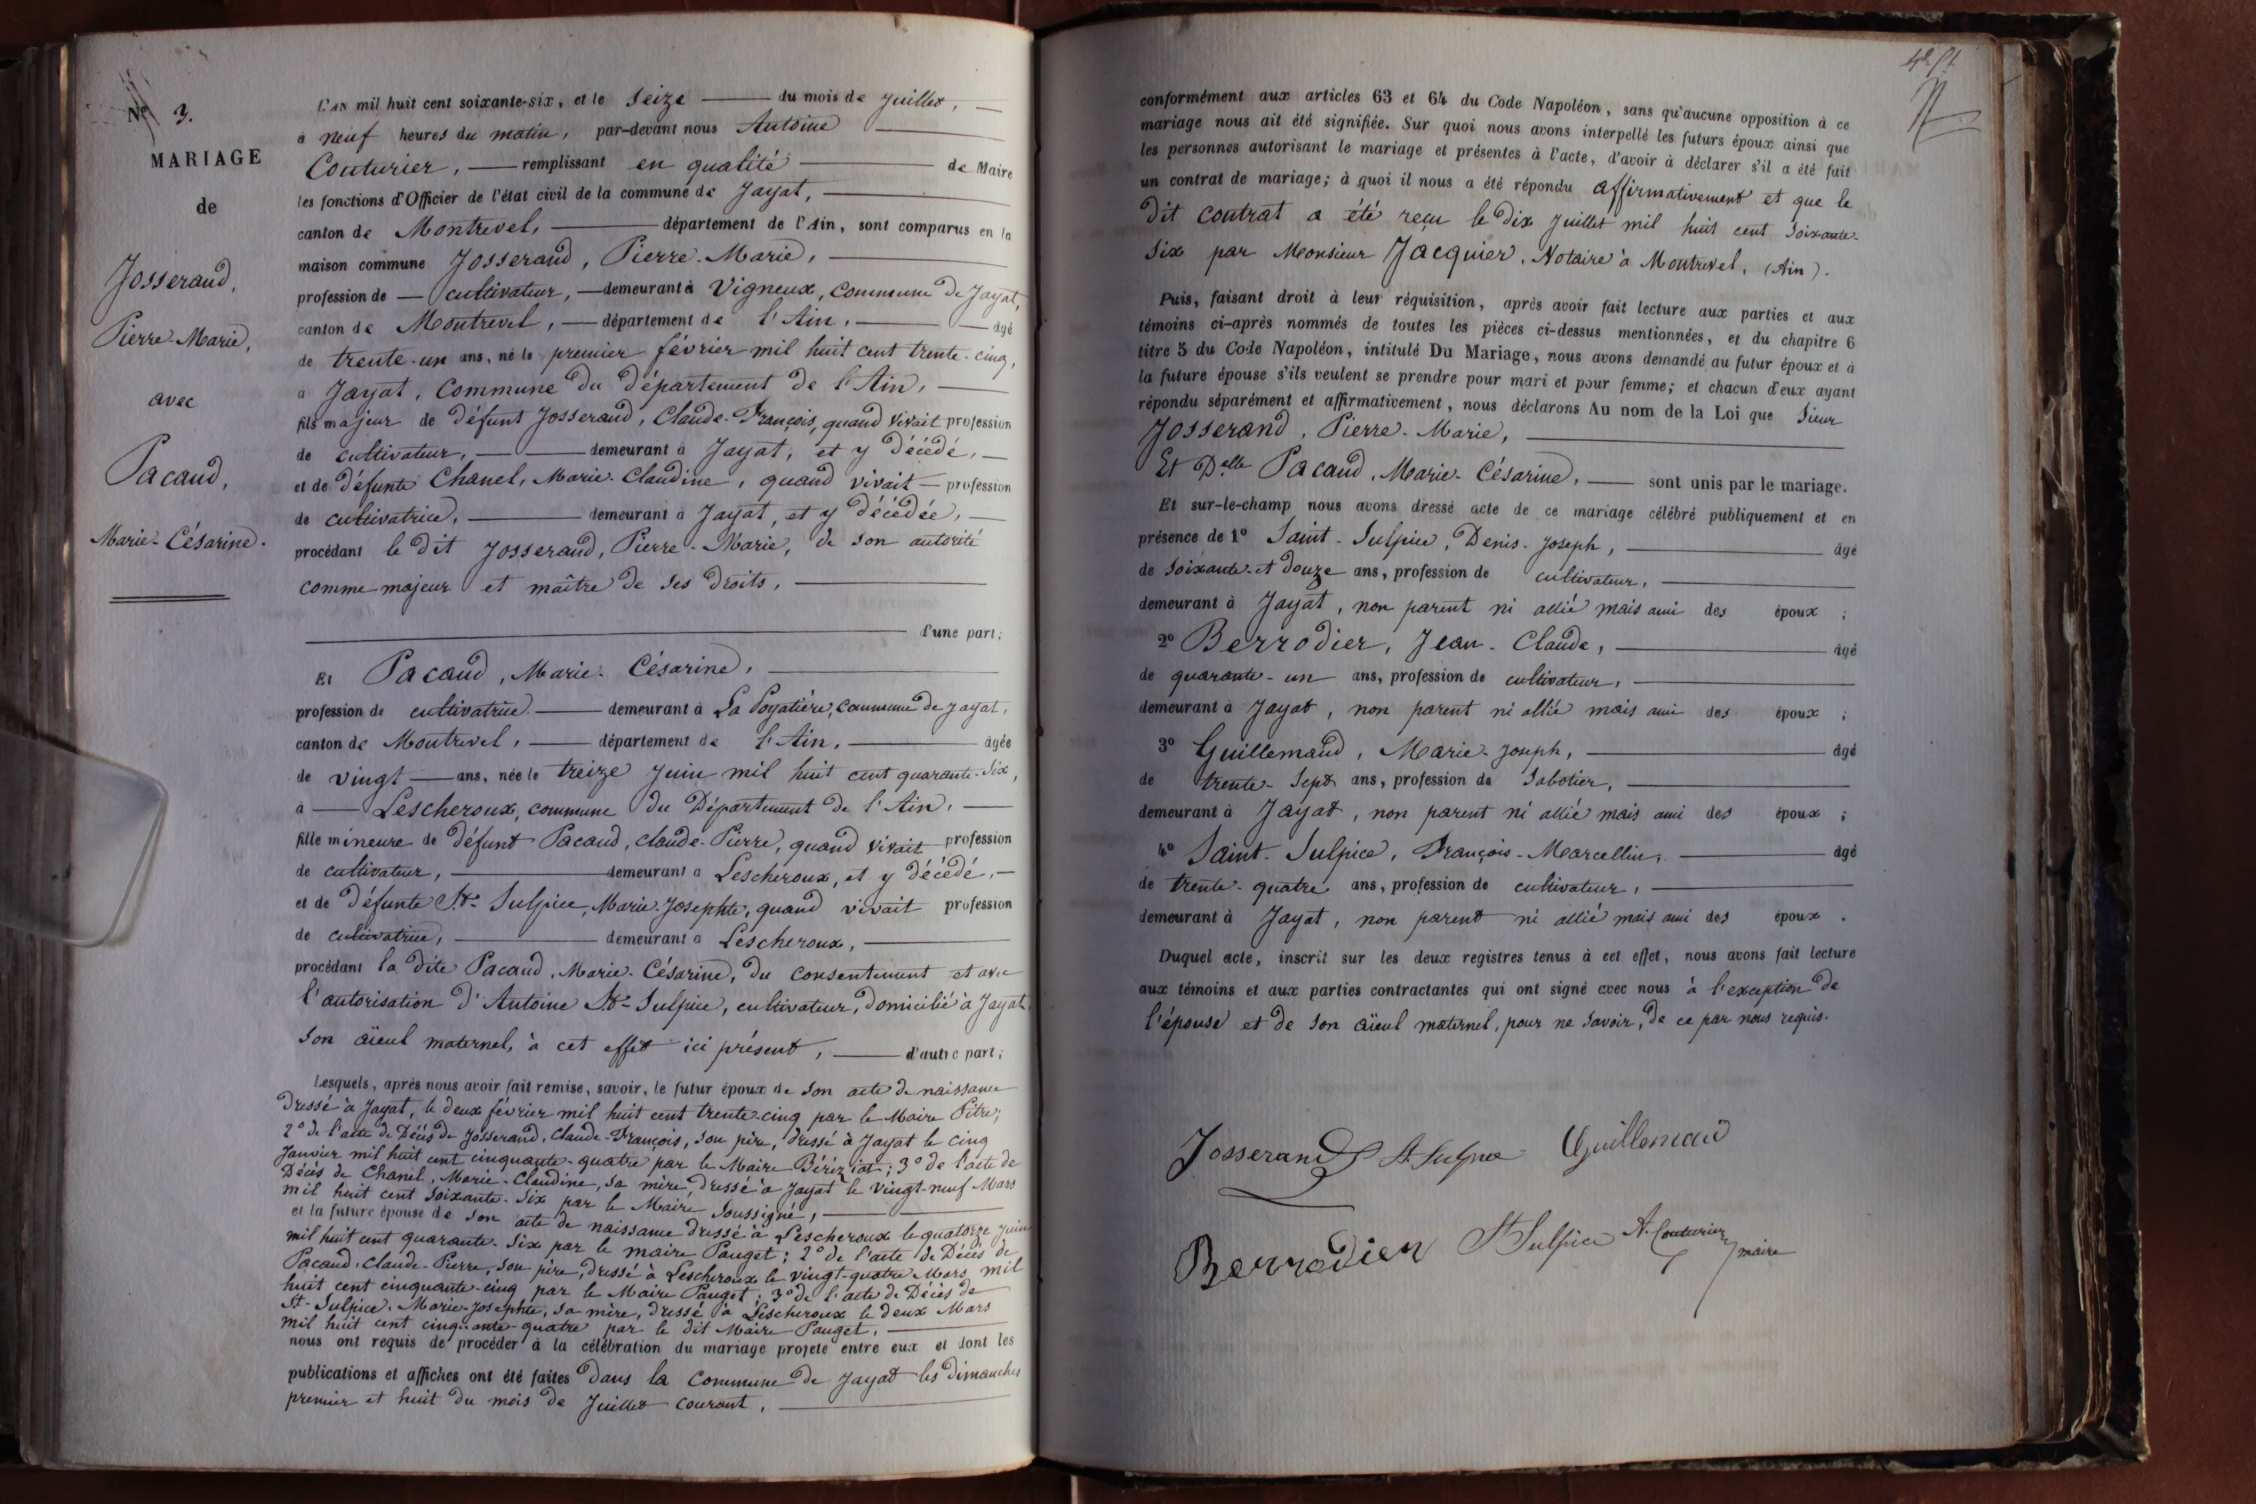 N° 3.
MARIAGE
de
Josserand,
Pierre-Marie,
avec
Pacaud,
Marie-Césarine.
L'AN mil huit cent soixante-six, et le seize du mois de Juillet,
à neuf heures du matin, par-devant nous Antoine
Couturier, remplissant en qualité de Maire
les fonctions d'Officier de l'état civil de la commune de Jayat,
canton de Montrevel, département de l'Ain, sont comparus en la
maison commune Josserand, Pierre-Marie,
profession de cultivateur, demeurant à Vigneux, commune de Jayat,
canton de Montrevel, département de l'Ain, âgé
de trente-un ans, né le premier février mil huit cent trente-cinq,
à Jayat, commune du département de l'Ain,
fils majeur de défunt Josserand, Claude-François, quand vivait profession
de cultivateur, demeurant à Jayat, et y décédé,
et de défunte Chanel, Marie-Claudine, quand vivait profession
de cultivatrice, demeurant à Jayat, et y décédée,
procédant le dit Josserand, Pierre-Marie, de son autorité
comme majeur et maître de ses droits,
d'une part;
Et Pacaud, Marie-Césarine,
profession de cultivatrice demeurant à La Poyatière, commune de Jayat,
canton de Montrevel, département de l'Ain, âgée
de vingt ans, née le treize Juin mil huit cent quarante-six,
à Lescheroux, commune du Département de l'Ain,
fille mineure de défunt Pacaud, Claude-Pierre, quand vivait profession
de cultivateur, demeurant à Lescheroux, et y décédé,
et de défunte St-Sulpice, Marie-Josephte, quand vivait profession
de cultivatrice, demeurant à Lescheroux,
procédant la dite Pacaud, Marie-Césarine, du consentement et avec
l'autorisation d'Antoine St-Sulpice, cultivateur, domicilié à Jayat,
son aïeul maternel, à cet effet ici présent, d'autre part;
Lesquels, après nous avoir fait remise, savoir, le futur époux de son acte de naissance
dressé à Jayat, le deux février mil huit cent trente-cinq par le Maire Pitre;
2° de l'acte de Décès de Josserand, Claude-François, son père, dressé à Jayat le cinq
Janvier mil huit cent cinquante-quatre par le Maire Bériziat; 3° de l'acte de
Décès de Chanel, Marie-Claudine, sa mère, dressé à Jayat le vingt-neuf Mars
mil huit cent soixante-six par le Maire soussigné,
et la future épouse de son acte de naissance dressé à Lescheroux le quatorze Juin
mil huit cent quarante-six par le maire Pauget; 2° de l'acte de Décès de
Pacaud, Claude-Pierre, son père, dressé à Lescheroux le vingt-quatre Mars mil
huit cent cinquante-cinq par le Maire Pauget; 3° de l'acte de Décès de
St-Sulpice, Marie-Josephte, sa mère, dressé à Lescheroux le deux Mars
mil huit cent cinquante-quatre par le dit Maire Pauget,
nous ont requis de procéder à la célébration du mariage projeté entre eux et dont les
publications et affiches ont été faites dans la commune de Jayat les dimanches
premier et huit du mois de Juillet courant,
conformément aux articles 63 et 64 du Code Napoléon, sans qu'aucune opposition à ce
mariage nous ait été signifiée. Sur quoi nous avons interpellé les futurs époux ainsi que
les personnes autorisant le mariage et présentes à l'acte, d'avoir à déclarer s'il a été fait
un contrat de mariage; à quoi il nous a été répondu affirmativement et que le
dit contrat a été reçu le dix Juillet mil huit cent soixante-
six par Monsieur Jacquier, Notaire à Montrevel, (Ain).
Puis, faisant droit à leur réquisition, après avoir fait lecture aux parties et aux
témoins ci-après nommés de toutes les pièces ci-dessus mentionnées, et du chapitre 6
titre 5 du Code Napoléon, intitulé Du Mariage, nous avons demandé au futur époux et à
la future épouse s'ils veulent se prendre pour mari et pour femme; et chacun d'eux ayant
répondu séparément et affirmativement, nous déclarons Au nom de la Loi que Sieur
Josserand, Pierre-Marie,
Et Delle Pacaud, Marie-Césarine, sont unis par le mariage.
Et sur-le-champ nous avons dressé acte de ce mariage célébré publiquement et en
présence de 1° Saint-Sulpice, Denis-Joseph, âgé
de soixante-et douze ans, profession de cultivateur,
demeurant à Jayat, non parent ni allié mais ami des époux;
2° Berrodier, Jean-Claude, âgé
de quarante-un ans, profession de cultivateur,
demeurant à Jayat, non parent ni allié mais ami des époux;
3° Guillemaud, Marie-Joseph, âgé
de trente-sept ans, profession de sabotier,
demeurant à Jayat, non parent ni allié mais ami des époux;
4° Saint-Sulpice, François-Marcellin, âgé
de trente-quatre ans, profession de cultivateur,
demeurant à Jayat, non parent ni allié mais ami des époux.
Duquel acte, inscrit sur les deux registres tenus à cet effet, nous avons fait lecture
aux témoins et aux parties contractantes qui ont signé avec nous à l'exception de
l'épouse et de son aïeul maternel, pour ne savoir, de ce par nous requis.
Josserand St Sulpice Guillemaud
Berrodier St Sulpice A. Couturier
maire